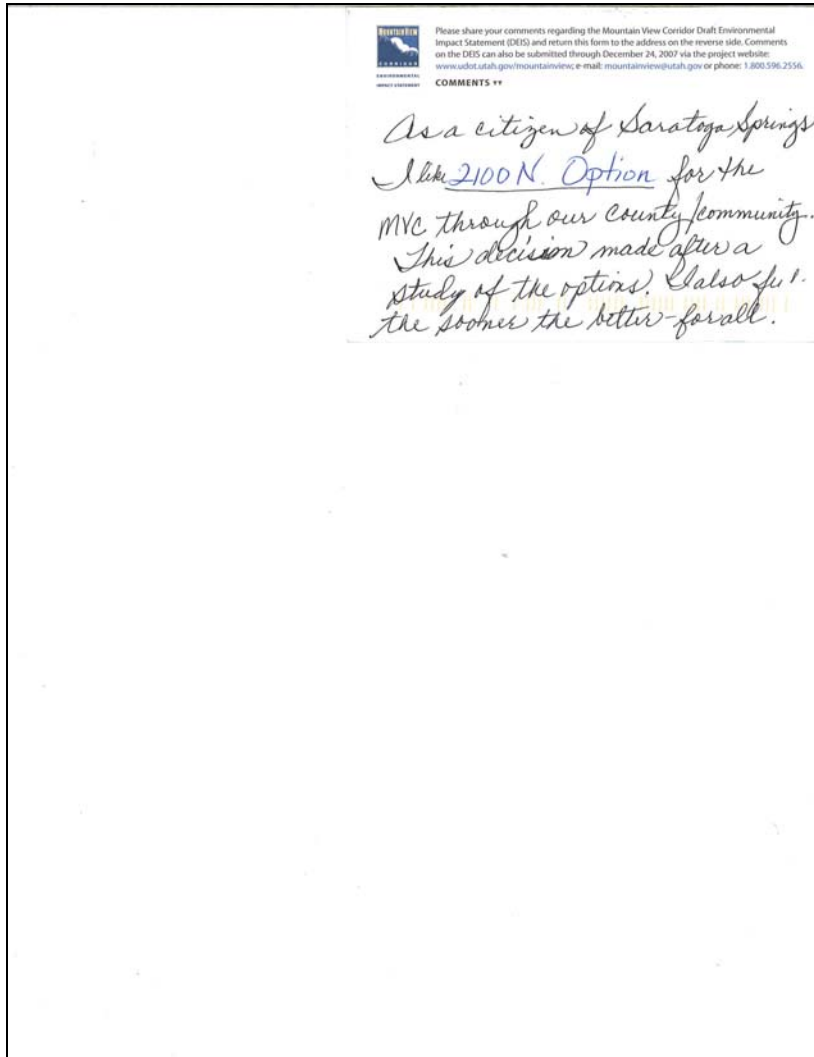 MOUNTAIN VIEW
CORRIDOR
ENVIRONMENTAL
IMPACT STATEMENT
Please share your comments regarding the Mountain View Corridor Draft Environmental
Impact Statement (DEIS) and return this form to the address on the reverse side. Comments
on the DEIS can also be submitted through December 24, 2007 via the project website:
www.udot.utah.gov/mountainview; e-mail: mountainview@utah.gov or phone: 1.800.596.2556.
COMMENTS ▾▾
As a citizen of Saratoga Springs
I like 2100 N. Option for the
MVC through our county/community.
This decision made after a
study of the options. I also
the sooner the better - for all.